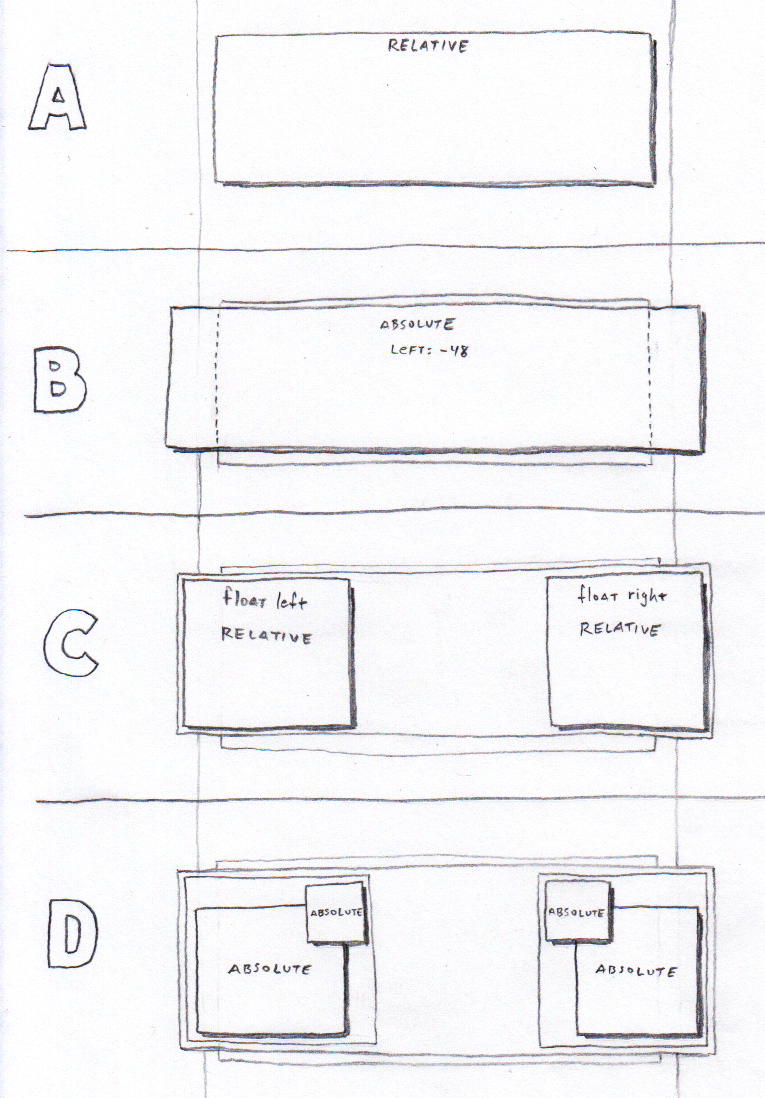 A
RELATIVE
B
ABSOLUTE
LEFT: -48
C
float left
RELATIVE
float right
RELATIVE
D
ABSOLUTE
ABSOLUTE
ABSOLUTE
ABSOLUTE